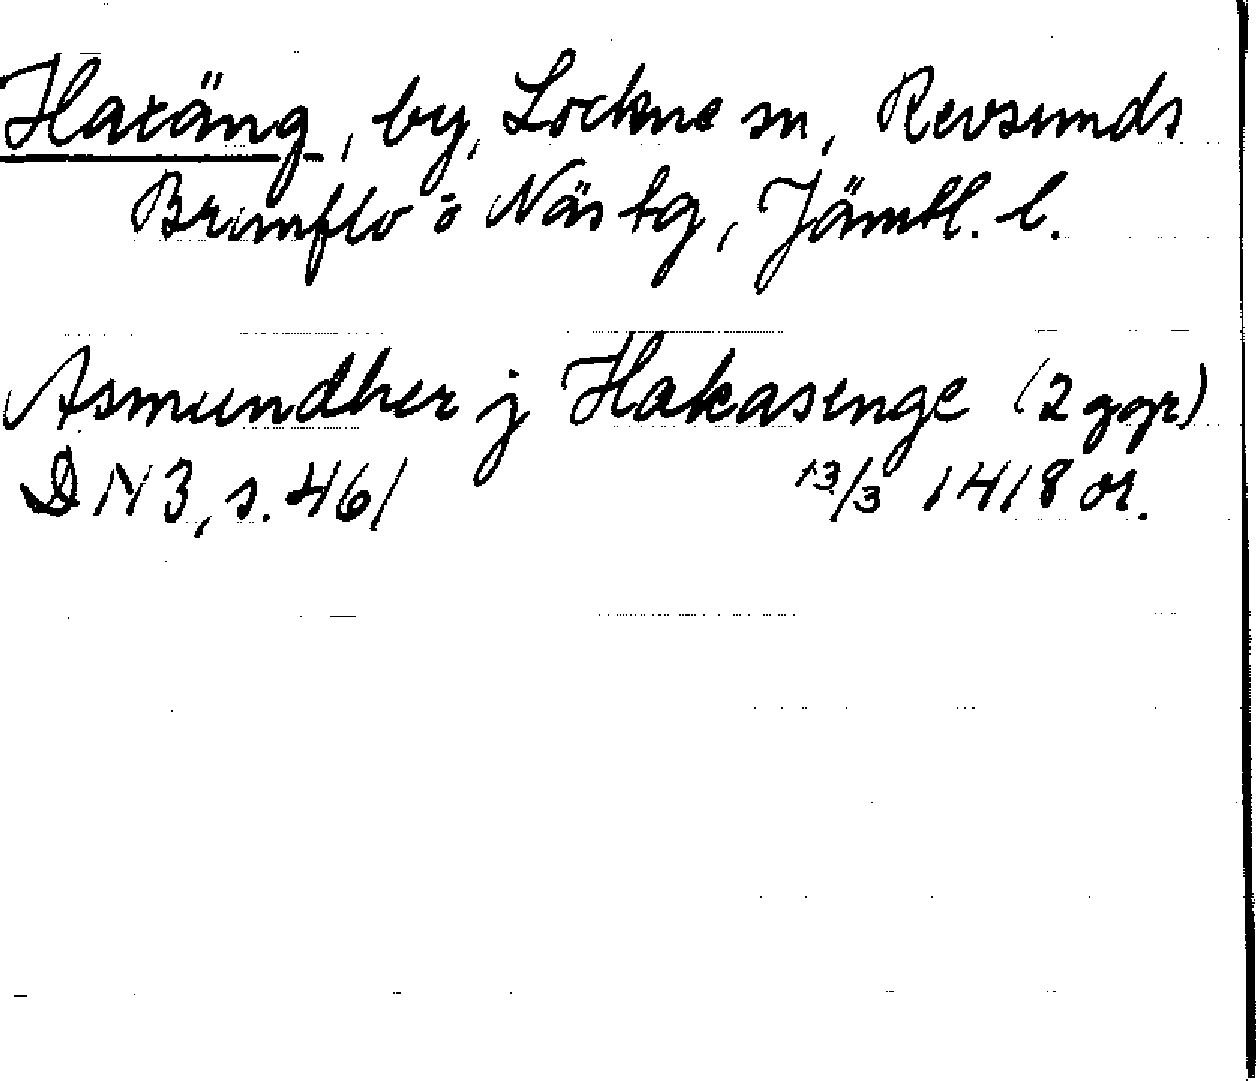 Haxäng, by, Lockne sn, Revsunds
Brunflo o Näs tg, Jämtl. l.
Asmundher j Hakasenge (2 ggr)
DN 3, s. 461 13/3 1418 or.